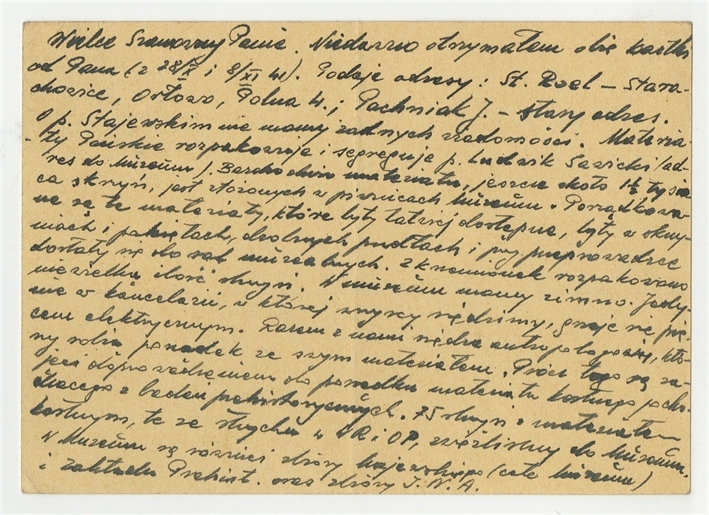 Wielce Szanowny Panie. Niedawno otrzymałem obie kartki
od Pana (z 28/X i 8/XI 41). Podaję adresy: St. Roel – Stara-
chowice, Orłowo, Polna 4.; Pachniak J. – stary adres.
O p. Stajewskim nie mamy żadnych wiadomości. Materia-
ły Pańskie rozpakowuje i segreguje p. Ludwik Sawicki (ad-
res do Muzeum). Bardzo dużo materiału, jeszcze około 1½ tysią-
ca skrzyń, jest złożonych w piwnicach Muzeum. Porządkowa-
ne są te materiały, które były łatwiej dostępne, były w skrzy-
niach i pakietach, drobnych pudłach i przy przeprowadzce
dostały się do sal muzealnych. rozpakowano
niewielką ilość skrzyń. W muzeum mamy zimno. Jedy-
nie w kancelarii, w której wszyscy siedzimy, grzeje się pie-
cem elektrycznym. Razem z nami siedzą antropologowie, któ-
rzy robią porządek ze swym materiałem. Prócz tego są za-
jęci doprowadzeniem do porządku materiału kostnego pocho-
dzącego z badań prehistorycznych. 75 skrzyń z materiałem
kostnym, te ze strychu w i OP, zwieźliśmy do Muzeum.
W Muzeum są również zbiory Majewskiego (całe Muzeum)
i Zakładu Prehist. oraz zbiory I.N.A.